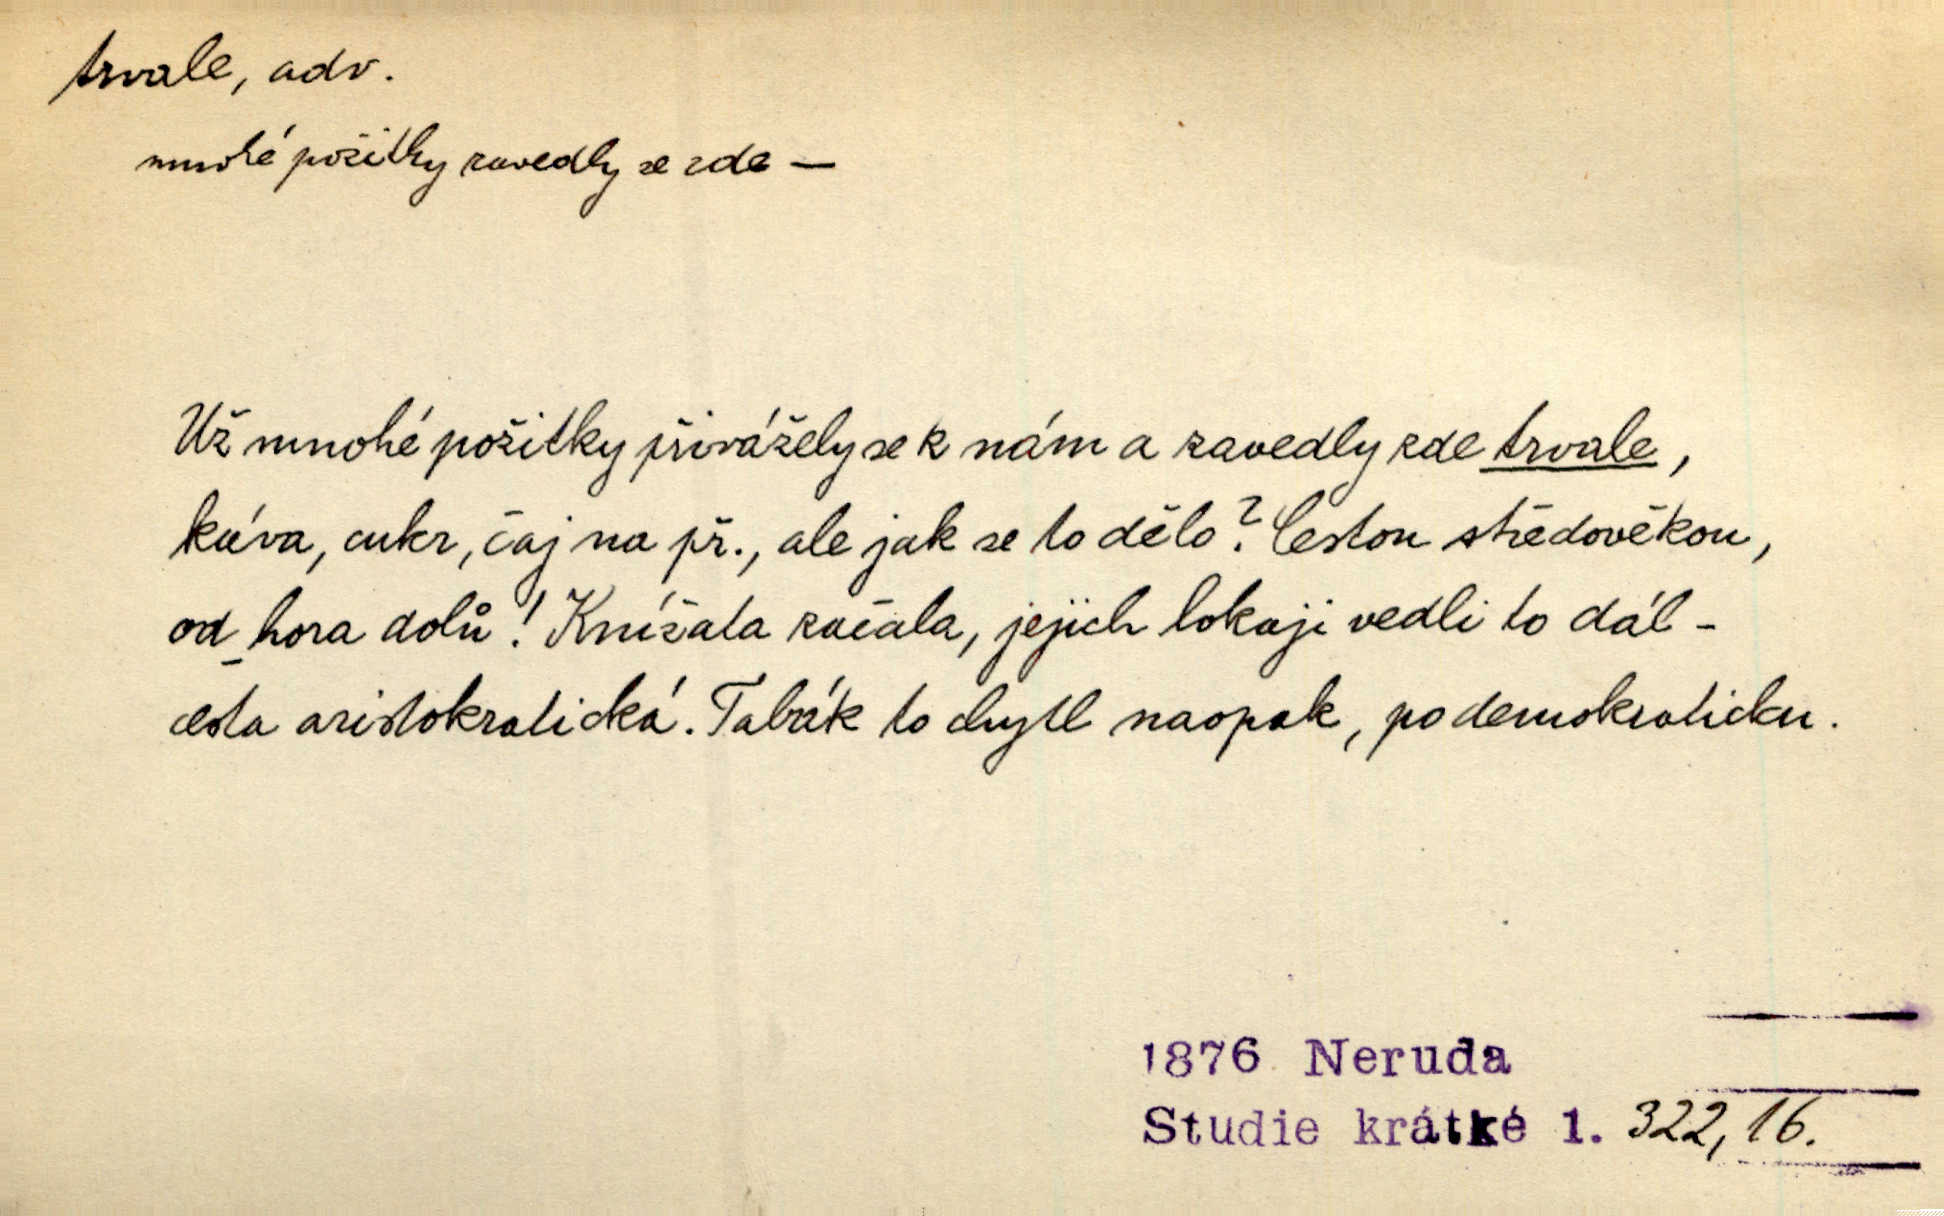 trvale, adv.
mnohé požitky zavedly se zde —
Už mnohé požitky přivážely se k nám a zavedly zde trvale,
káva, cukr, čaj na př., ale jak se to dělo? Cestou středověkou,
od hora dolů! Knížata začala, jejich lokaji vedli to dál –
cesta aristokratická. Tabák to chytl naopak, po demokraticku.
1876 Neruda
Studie krátké 1. 322, 16.